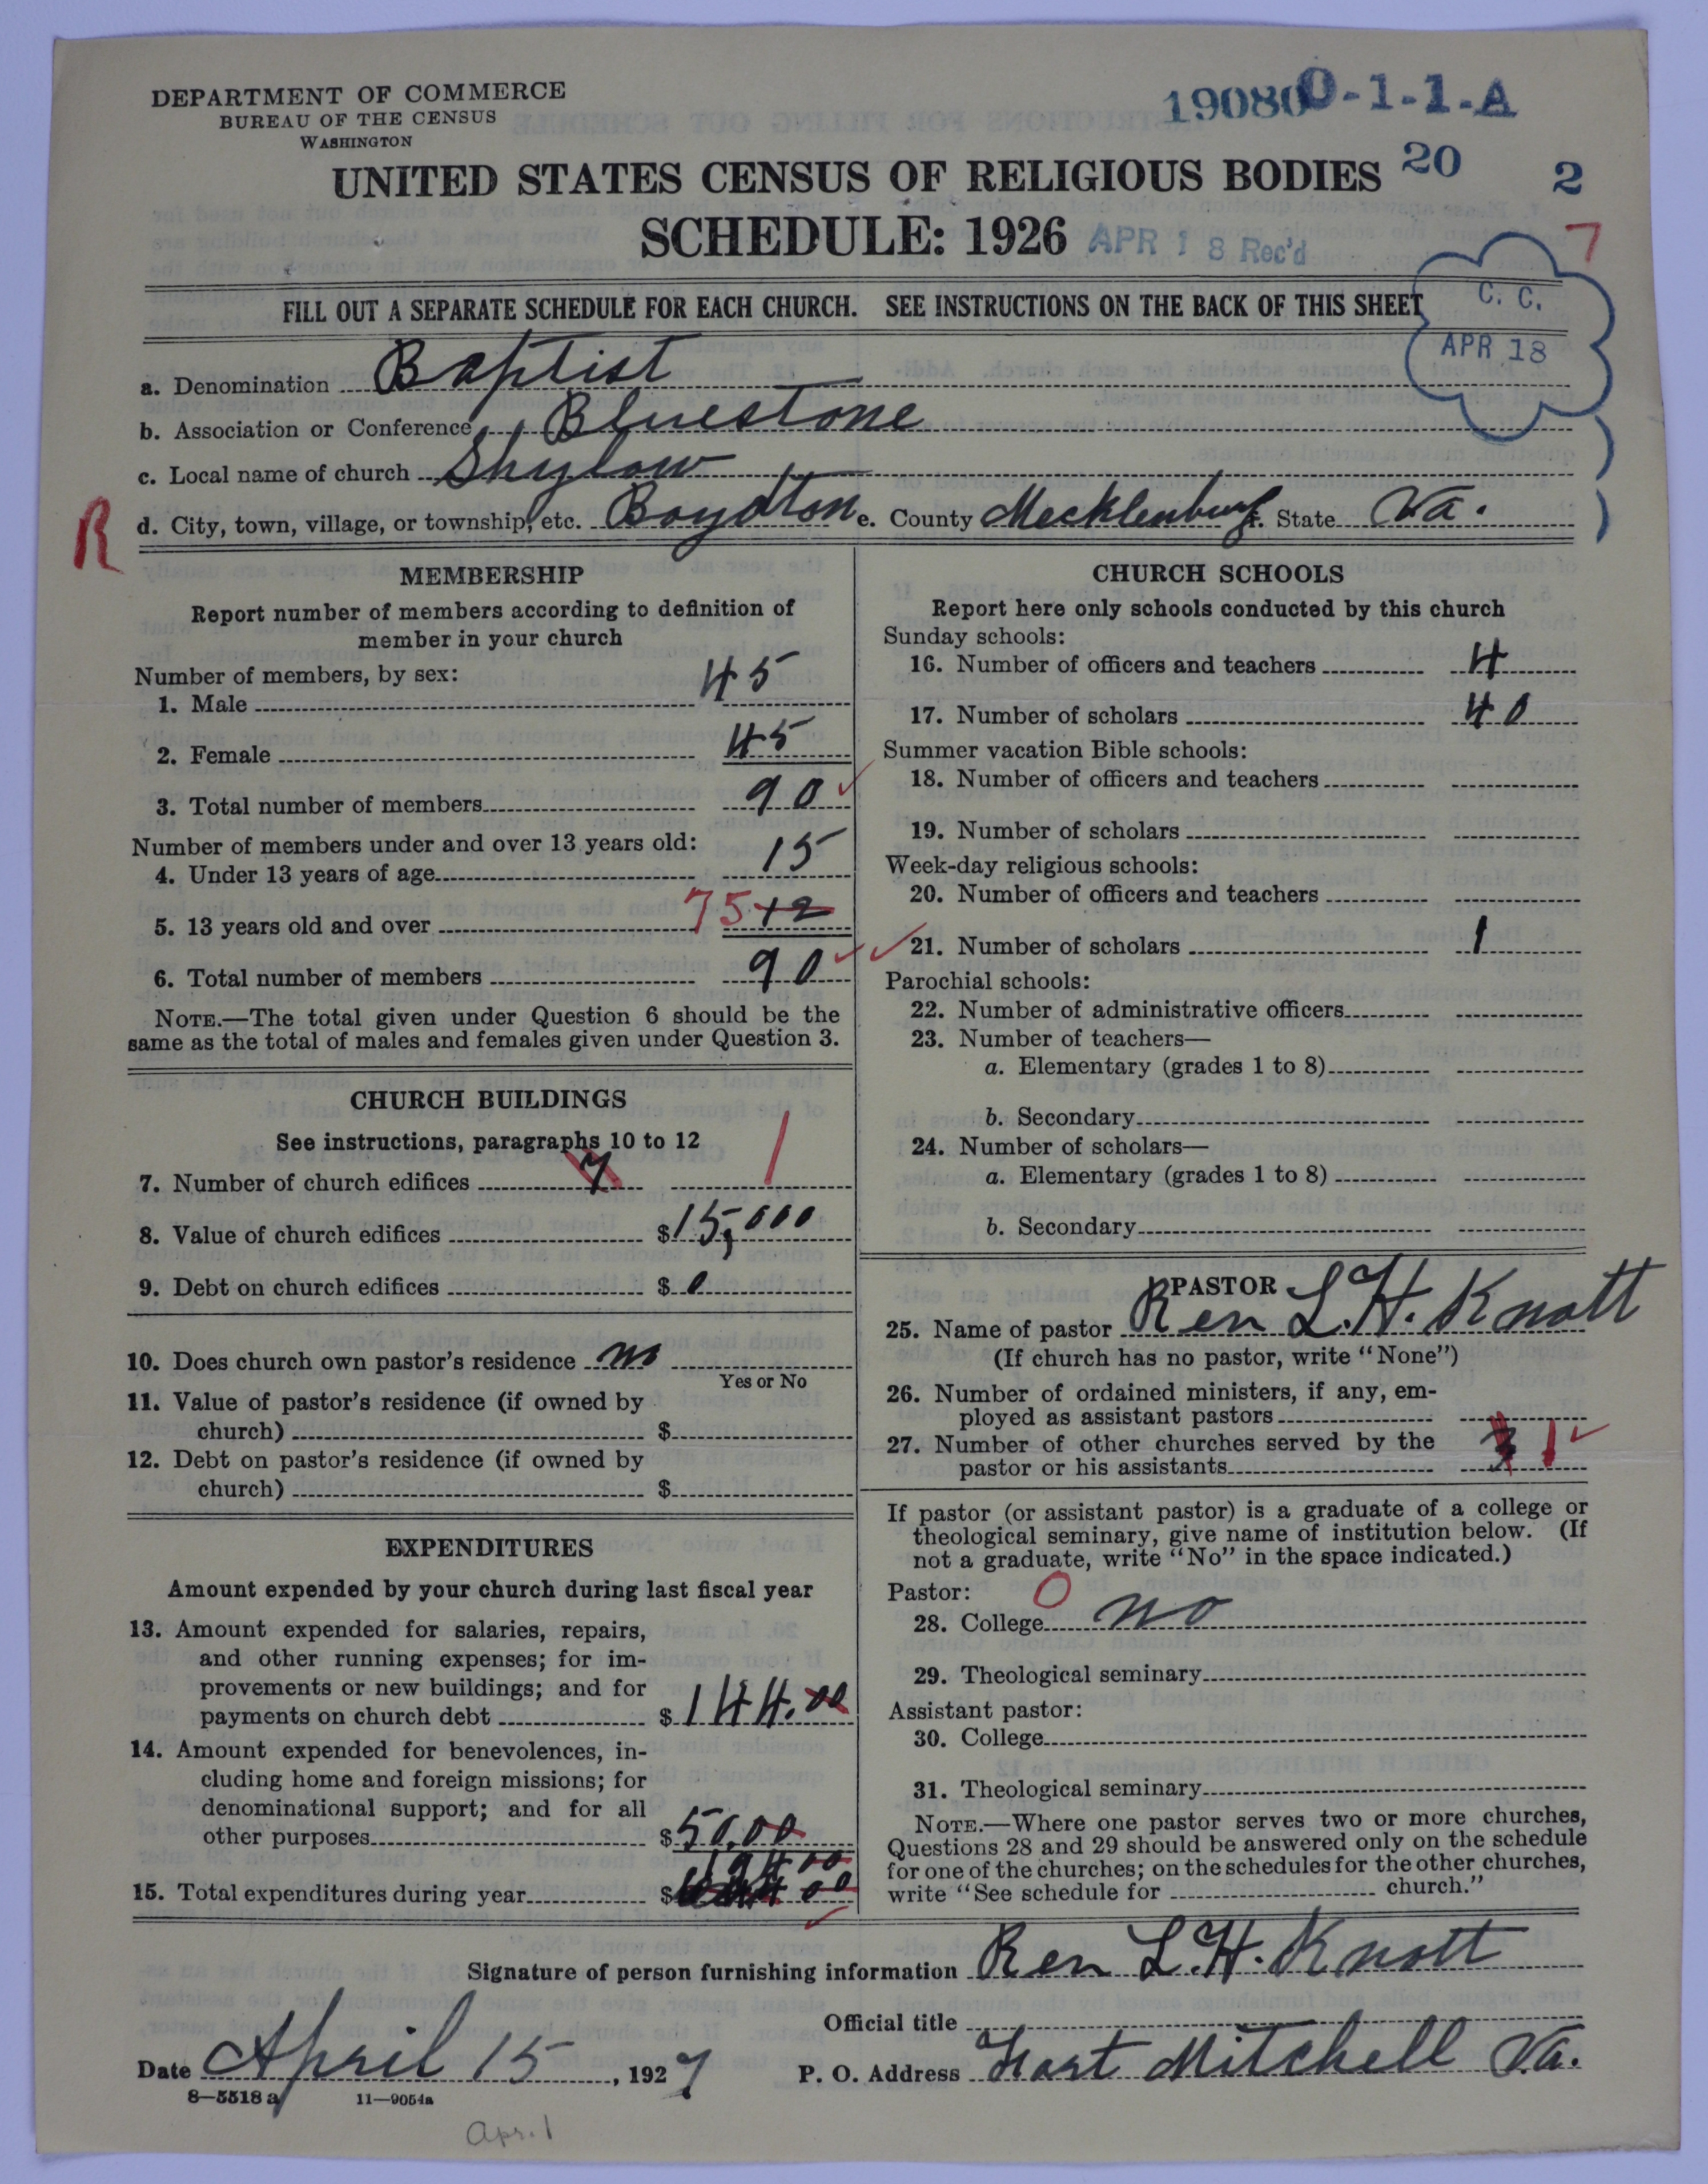 DEPARTMENT OF COMMERCE
BUREAU OF THE CENSUS
WASHINGTON
19080 0-1-1-A
UNITED STATES CENSUS OF RELIGIOUS BODIES 20 2
SCHEDULE: 1926 APR 18 Rec'd 7
FILL OUT A SEPARATE SCHEDULE FOR EACH CHURCH. SEE INSTRUCTIONS ON THE BACK OF THIS SHEET
C. C.
APR 18
a. Denomination Baptist
b. Association or Conference Bluestone
c. Local name of church Shylow
R d. City, town, village, or township, etc. Boydton e. County Mecklenburg f. State Va.
MEMBERSHIP
Report number of members according to definition of
member in your church
Number of members, by sex:
1. Male 45
2. Female 45
3. Total number of members 90
Number of members under and over 13 years old:
4. Under 13 years of age 15
5. 13 years old and over 75 12
6. Total number of members 90
NOTE.—The total given under Question 6 should be the
same as the total of males and females given under Question 3.
CHURCH BUILDINGS
See instructions, paragraphs 10 to 12
7. Number of church edifices 1
8. Value of church edifices $15,000
9. Debt on church edifices $ 0
10. Does church own pastor's residence no
Yes or No
11. Value of pastor's residence (if owned by
church) $
12. Debt on pastor's residence (if owned by
church) $
EXPENDITURES
Amount expended by your church during last fiscal year
13. Amount expended for salaries, repairs,
and other running expenses; for im-
provements or new buildings; and for
payments on church debt $144.00
14. Amount expended for benevolences, in-
cluding home and foreign missions; for
denominational support; and for all
other purposes $50.00
194 00
15. Total expenditures during year $
CHURCH SCHOOLS
Report here only schools conducted by this church
Sunday schools:
16. Number of officers and teachers 4
17. Number of scholars 40
Summer vacation Bible schools:
18. Number of officers and teachers
19. Number of scholars
Week-day religious schools:
20. Number of officers and teachers
21. Number of scholars 1
Parochial schools:
22. Number of administrative officers
23. Number of teachers—
a. Elementary (grades 1 to 8)
b. Secondary
24. Number of scholars—
a. Elementary (grades 1 to 8)
b. Secondary
PASTOR
25. Name of pastor Rev L. H. Knott
(If church has no pastor, write "None")
26. Number of ordained ministers, if any, em-
ployed as assistant pastors
27. Number of other churches served by the
pastor or his assistants 3 1
If pastor (or assistant pastor) is a graduate of a college or
theological seminary, give name of institution below. (If
not a graduate, write "No" in the space indicated.)
Pastor: 0
28. College no
29. Theological seminary
Assistant pastor:
30. College
31. Theological seminary
NOTE.—Where one pastor serves two or more churches,
Questions 28 and 29 should be answered only on the schedule
for one of the churches; on the schedules for the other churches,
write "See schedule for church."
Signature of person furnishing information Rev L. H. Knott
Official title
Date April 15, 1927 P. O. Address Fort Mitchell Va.
8—5518 a 11—9054a
Apr. 1